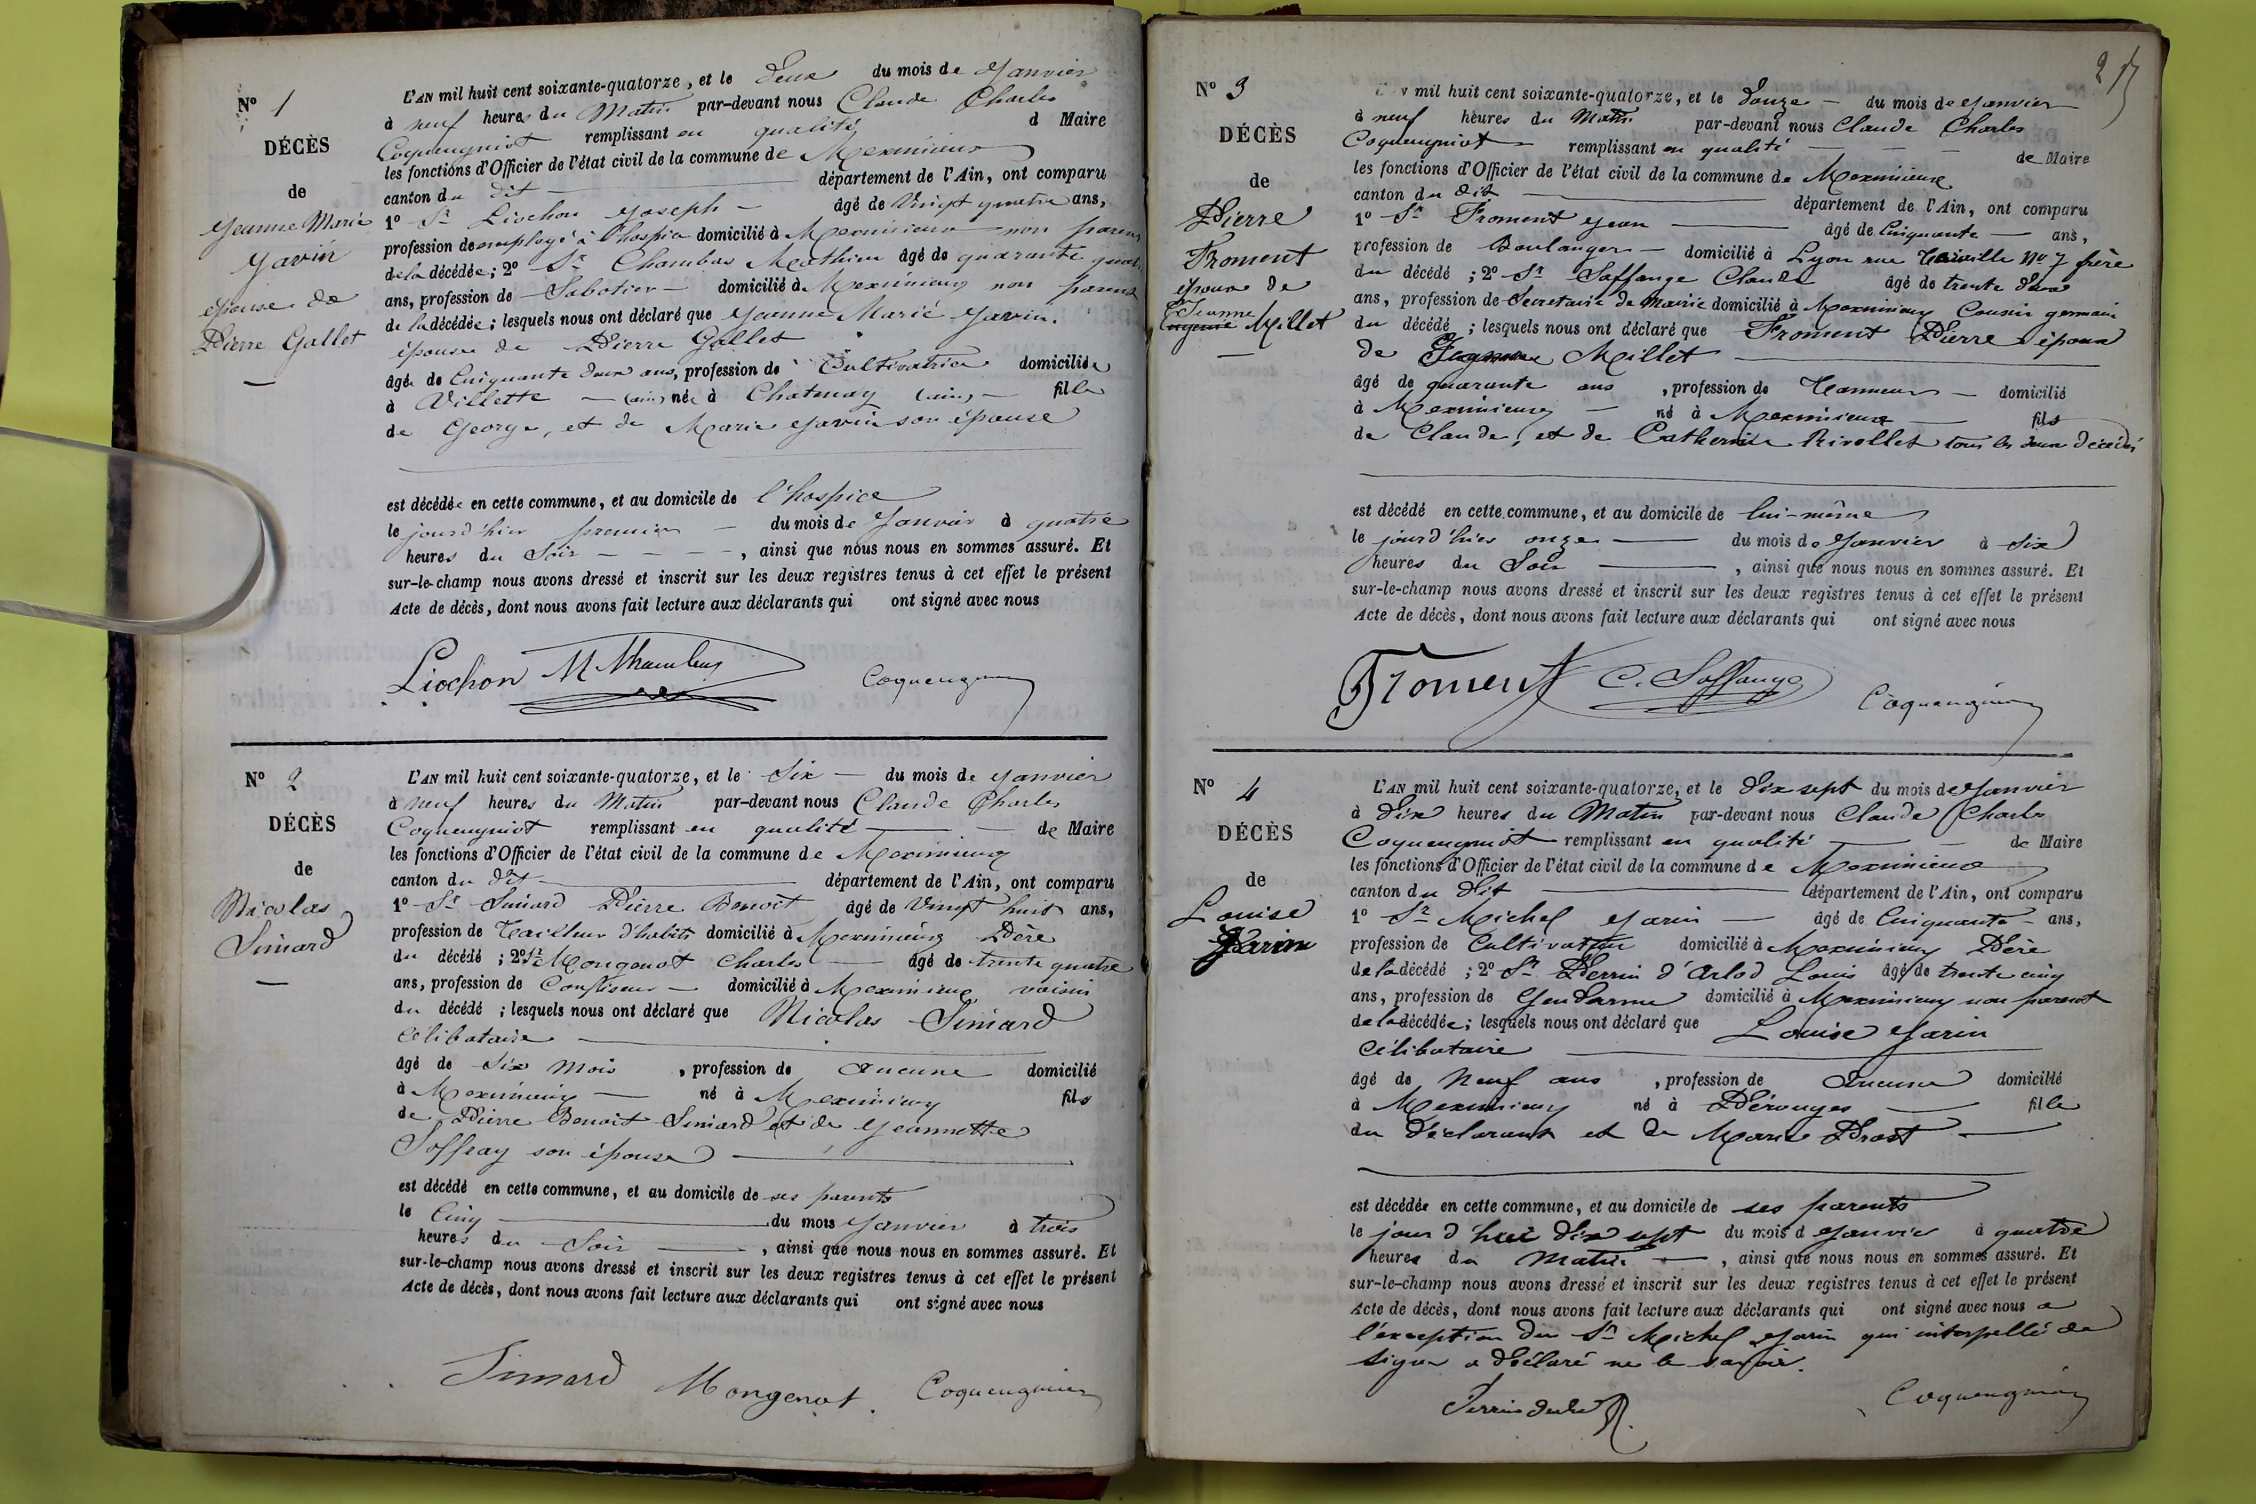 Nº 1
DÉCÈS
de
Jeanne Marie
Javin
épouse de
Pierre Gallet
L'AN mil huit cent soixante-quatorze, et le deux du mois de Janvier
à neuf heures du Matin par-devant nous Claude Charles
Coquengniot remplissant en qualité d Maire
les fonctions d'Officier de l'état civil de la commune de Meximieux
canton du dit département de l'Ain, ont comparu
1º Sr Liochon Joseph âgé de Vingt quatre ans,
profession de employé à l'hospice domicilié à Meximieux non parent
de la décédée; 2º Sr Chambas Mathieu âgé de quarante
ans, profession de Sabotier domicilié à Meximieux non parent
de la décédée; lesquels nous ont déclaré que Jeanne Marie Javin
épouse de Pierre Gallet
âgé de Cinquante deux ans, profession de Cultivatrice domiciliée
à Villette (ain) née à Chatenay (ain) fille
de George, et de Marie Javin son épouse
est décédée en cette commune, et au domicile de l'hospice
le jourd'hier premier du mois de Janvier à quatre
heures du Soir, ainsi que nous nous en sommes assuré. Et
sur-le-champ nous avons dressé et inscrit sur les deux registres tenus à cet effet le présent
Acte de décès, dont nous avons fait lecture aux déclarants qui ont signé avec nous
Liochon M Chambas Coquengniot
Nº 2
DÉCÈS
de
Nicolas
Simard
L'AN mil huit cent soixante-quatorze, et le Six du mois de Janvier
à neuf heures du Matin par-devant nous Claude Charles
Coquengniot remplissant en qualité de Maire
les fonctions d'Officier de l'état civil de la commune de Meximieux
canton du dit département de l'Ain, ont comparu
1º Sr Simard Pierre Benoit âgé de Vingt huit ans,
profession de Tailleur d'habits domicilié à Meximieux Père
du décédé; 2º Sr Mongenot Charles âgé de trente quatre
ans, profession de Confiseur domicilié à Meximieux voisin
du décédé; lesquels nous ont déclaré que Nicolas Simard
Célibataire
âgé de Six Mois, profession de aucune domicilié
à Meximieux né à Meximieux fils
de Pierre Benoit Simard et de Jeannette
Soffray son épouse
est décédé en cette commune, et au domicile de ses parents
le Cinq du mois Janvier à trois
heures du Soir, ainsi que nous nous en sommes assuré. Et
sur-le-champ nous avons dressé et inscrit sur les deux registres tenus à cet effet le présent
Acte de décès, dont nous avons fait lecture aux déclarants qui ont signé avec nous
Simard Mongenot Coquengniot
2
Nº 3
DÉCÈS
de
Pierre
Froment
époux de
Jeanne
Millet
mil huit cent soixante-quatorze, et le douze du mois de Janvier
à neuf heures du Matin par-devant nous Claude Charles
Coquengniot remplissant en qualité de Maire
les fonctions d'Officier de l'état civil de la commune de Meximieux
canton du dit département de l'Ain, ont comparu
1º Sr Froment Jean âgé de Cinquante ans,
profession de Boulanger domicilié à Lyon rue No 7 frère
du décédé; 2º Sr Soffange Claude âgé de trente deux
ans, profession de Secretaire de Mairie domicilié à Meximieux Cousin germain
du décédé; lesquels nous ont déclaré que Froment Pierre époux
de Millet
âgé de quarante ans, profession de Tanneur domicilié
à Meximieux né à Meximieux fils
de Claude, et de Catherine Rivollet tous les deux décédés
est décédé en cette commune, et au domicile de lui-même
le jourd'hier onze du mois de Janvier à Six
heures du Soir, ainsi que nous nous en sommes assuré. Et
sur-le-champ nous avons dressé et inscrit sur les deux registres tenus à cet effet le présent
Acte de décès, dont nous avons fait lecture aux déclarants qui ont signé avec nous
Froment C. Soffange Coquengniot
Nº 4
DÉCÈS
de
Louise
Jarin
L'AN mil huit cent soixante-quatorze, et le dix sept du mois de Janvier
à dix heures du Matin par-devant nous Claude Charles
Coquengniot remplissant en qualité de Maire
les fonctions d'Officier de l'état civil de la commune de Meximieux
canton du dit département de l'Ain, ont comparu
1º Sr Michel Jarin âgé de Cinquante ans,
profession de Cultivateur domicilié à Meximieux Père
de la décédé; 2º Sr Perrin d'Arlod Louis âgé de trente cinq
ans, profession de Gendarme domicilié à Meximieux non parent
de la décédée; lesquels nous ont déclaré que Louise Jarin
Célibataire
âgé de Neuf ans, profession de Aucune domicilié
à Meximieux né à Pérouges fille
du déclarant et de Marie Prost
est décédée en cette commune, et au domicile de ses parents
le jour d'hui dix sept du mois d Janvier à quatre
heures du Matin, ainsi que nous nous en sommes assuré. Et
sur-le-champ nous avons dressé et inscrit sur les deux registres tenus à cet effet le présent
Acte de décès, dont nous avons fait lecture aux déclarants qui ont signé avec nous a
l'exception du Sr Michel Jarin qui interpellé de
signer a déclaré ne le savoir.
Coquengniot